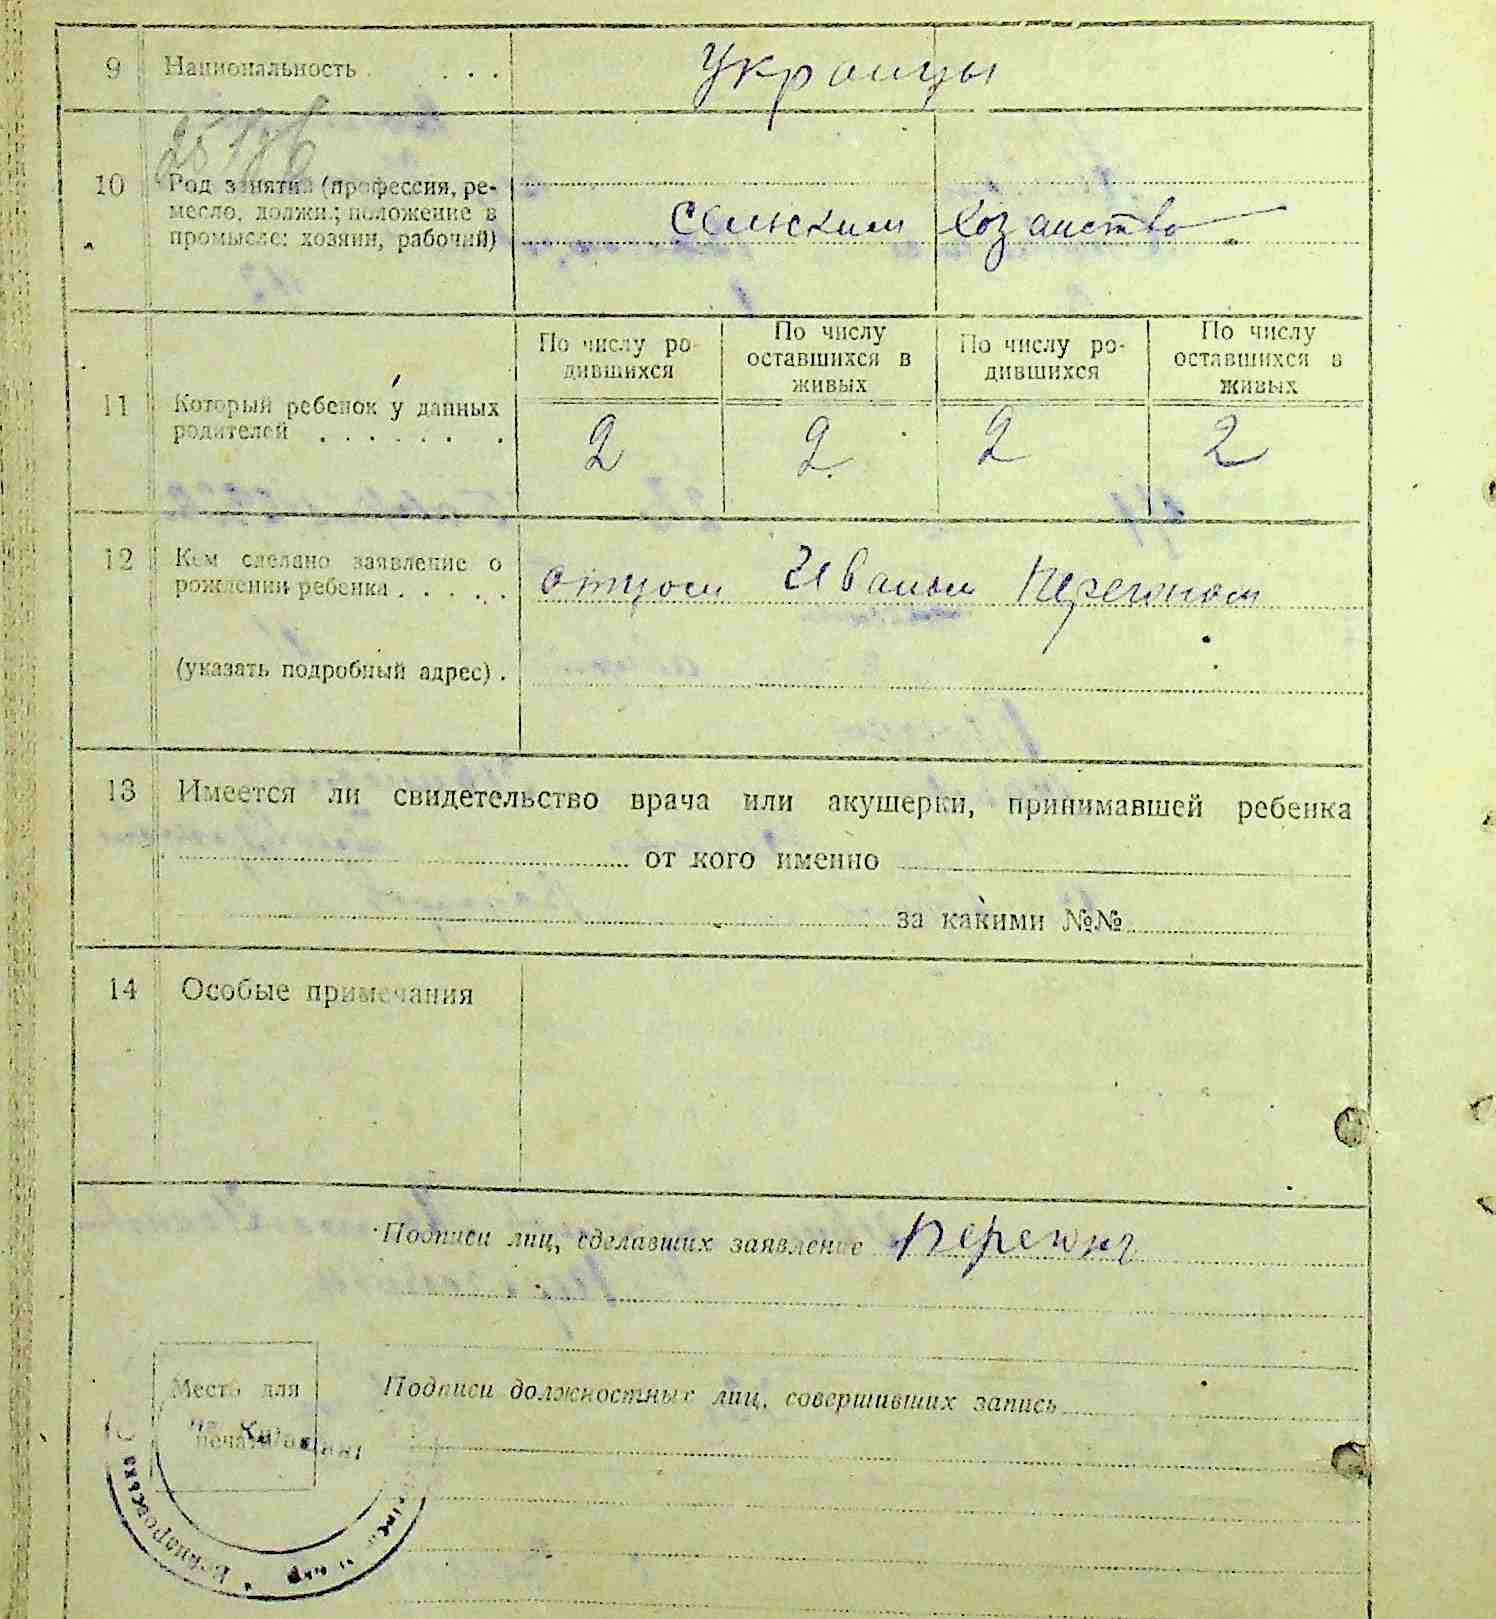 9 Национальность . . . . Украинцы
10 Род занятий (профессия, ре-
месло, должн.; положение в
промысле: хозяин, рабочий)
Сельским хозаиство
По числу ро-
дившихся
По числу
оставшихся в
живых
По числу ро-
дившихся
По числу
оставшихся в
живых
11 Который ребенок у данных
родителей . . . . . . .
2 2 2 2
12 Кем сделано заявление о
рождении ребенка . . . . .
отцом Иваном Перегоном
(указать подробный адрес) .
13 Имеется ли свидетельство врача или акушерки, принимавшей ребенка
от кого именно
за какими №№
14 Особые примечания
Подписи лиц, сделавших заявление
Подписи должностных лиц, совершивших запись
Место для
печати